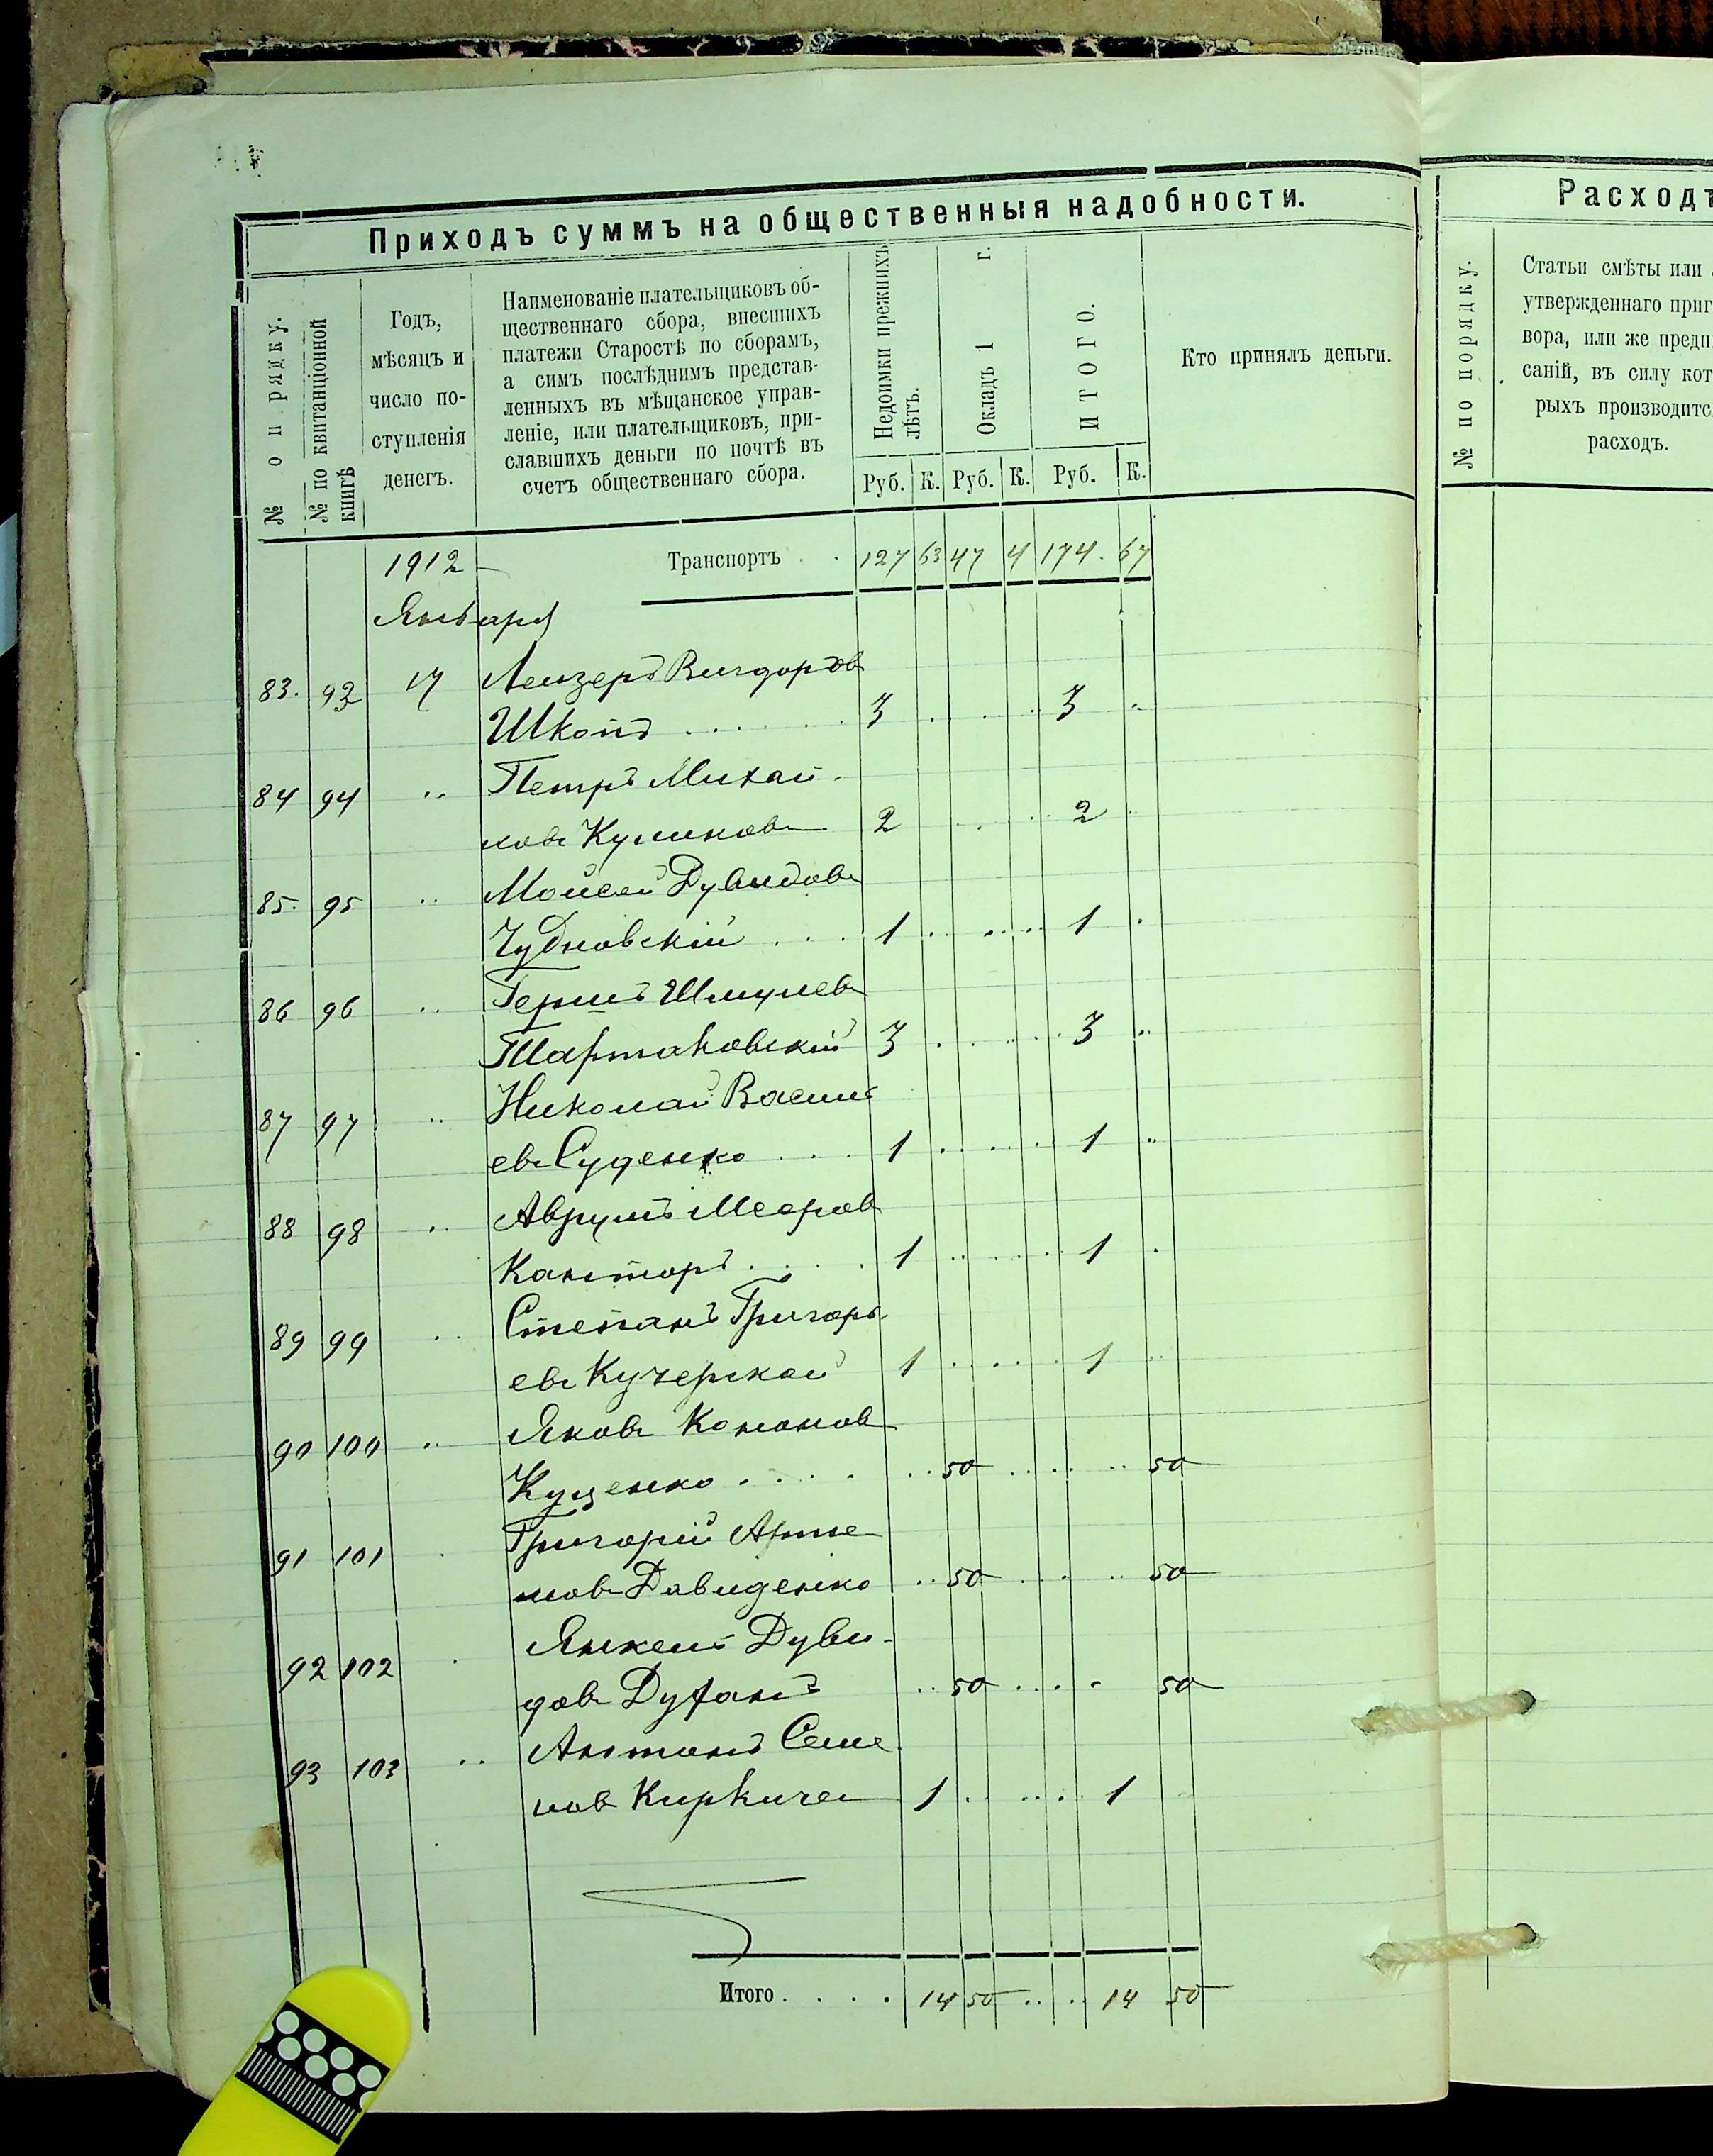 Приходъ суммъ на общественныя надобности.
№ по рядку.
№ по квитанціонной книгѣ
Годъ,
мѣсяцъ и
число по-
ступленія
денегъ.
Наименованіе плательщиковъ об-
щественнаго сбора, внесшихъ
платежи Старостѣ по сборамъ,
а симъ послѣднимъ представ-
ленныхъ въ мѣщанское управ-
леніе, или плательщиковъ, при-
славшихъ деньги по почтѣ въ
счетъ общественнаго сбора.
Недоимки прежнихъ
лѣтъ.
Окладъ 1 г.
ИТОГО.
Кто принялъ деньги.
Руб. К. Руб. К. Руб. К.
1912 Транспортъ . . 127 63 47 4 174 . 67
Января
83. 93 17 Лейзеръ Вигдоровъ
Шкопъ . . . . . . 3 3
84 94 „ Петръ Михай-
ловъ Куликовъ 2 2
85. 95 „ Мойсей Дувидовъ
Чудновскій . . . 1 1
86 96 „ Гершъ Шмулевъ
Тартаковскій 3 3
87 97 „ Николай Василь
евъ Суденко . . . 1 1
88 98 „ Аврумъ Мееровъ
Канторъ . . . . 1 1
89 99 „ Степанъ Григорь
евъ Кучерской 1 1
90 100 „ Яковъ Кононовъ
Куценко . . . . 50 50
91 101 Григорій Арте
мовъ Давиденко 50 50
92 102 Янкель Дуви-
довъ Духанъ 50 50
93 103 „ Антонъ Семе
новъ 1 1
Итого . . . . 14 50 14 50
Расходъ
№ по порядку.
Статьи смѣты или
утвержденнаго приг
вора, или же предпи
саній, въ силу кот
рыхъ производитс
расходъ.